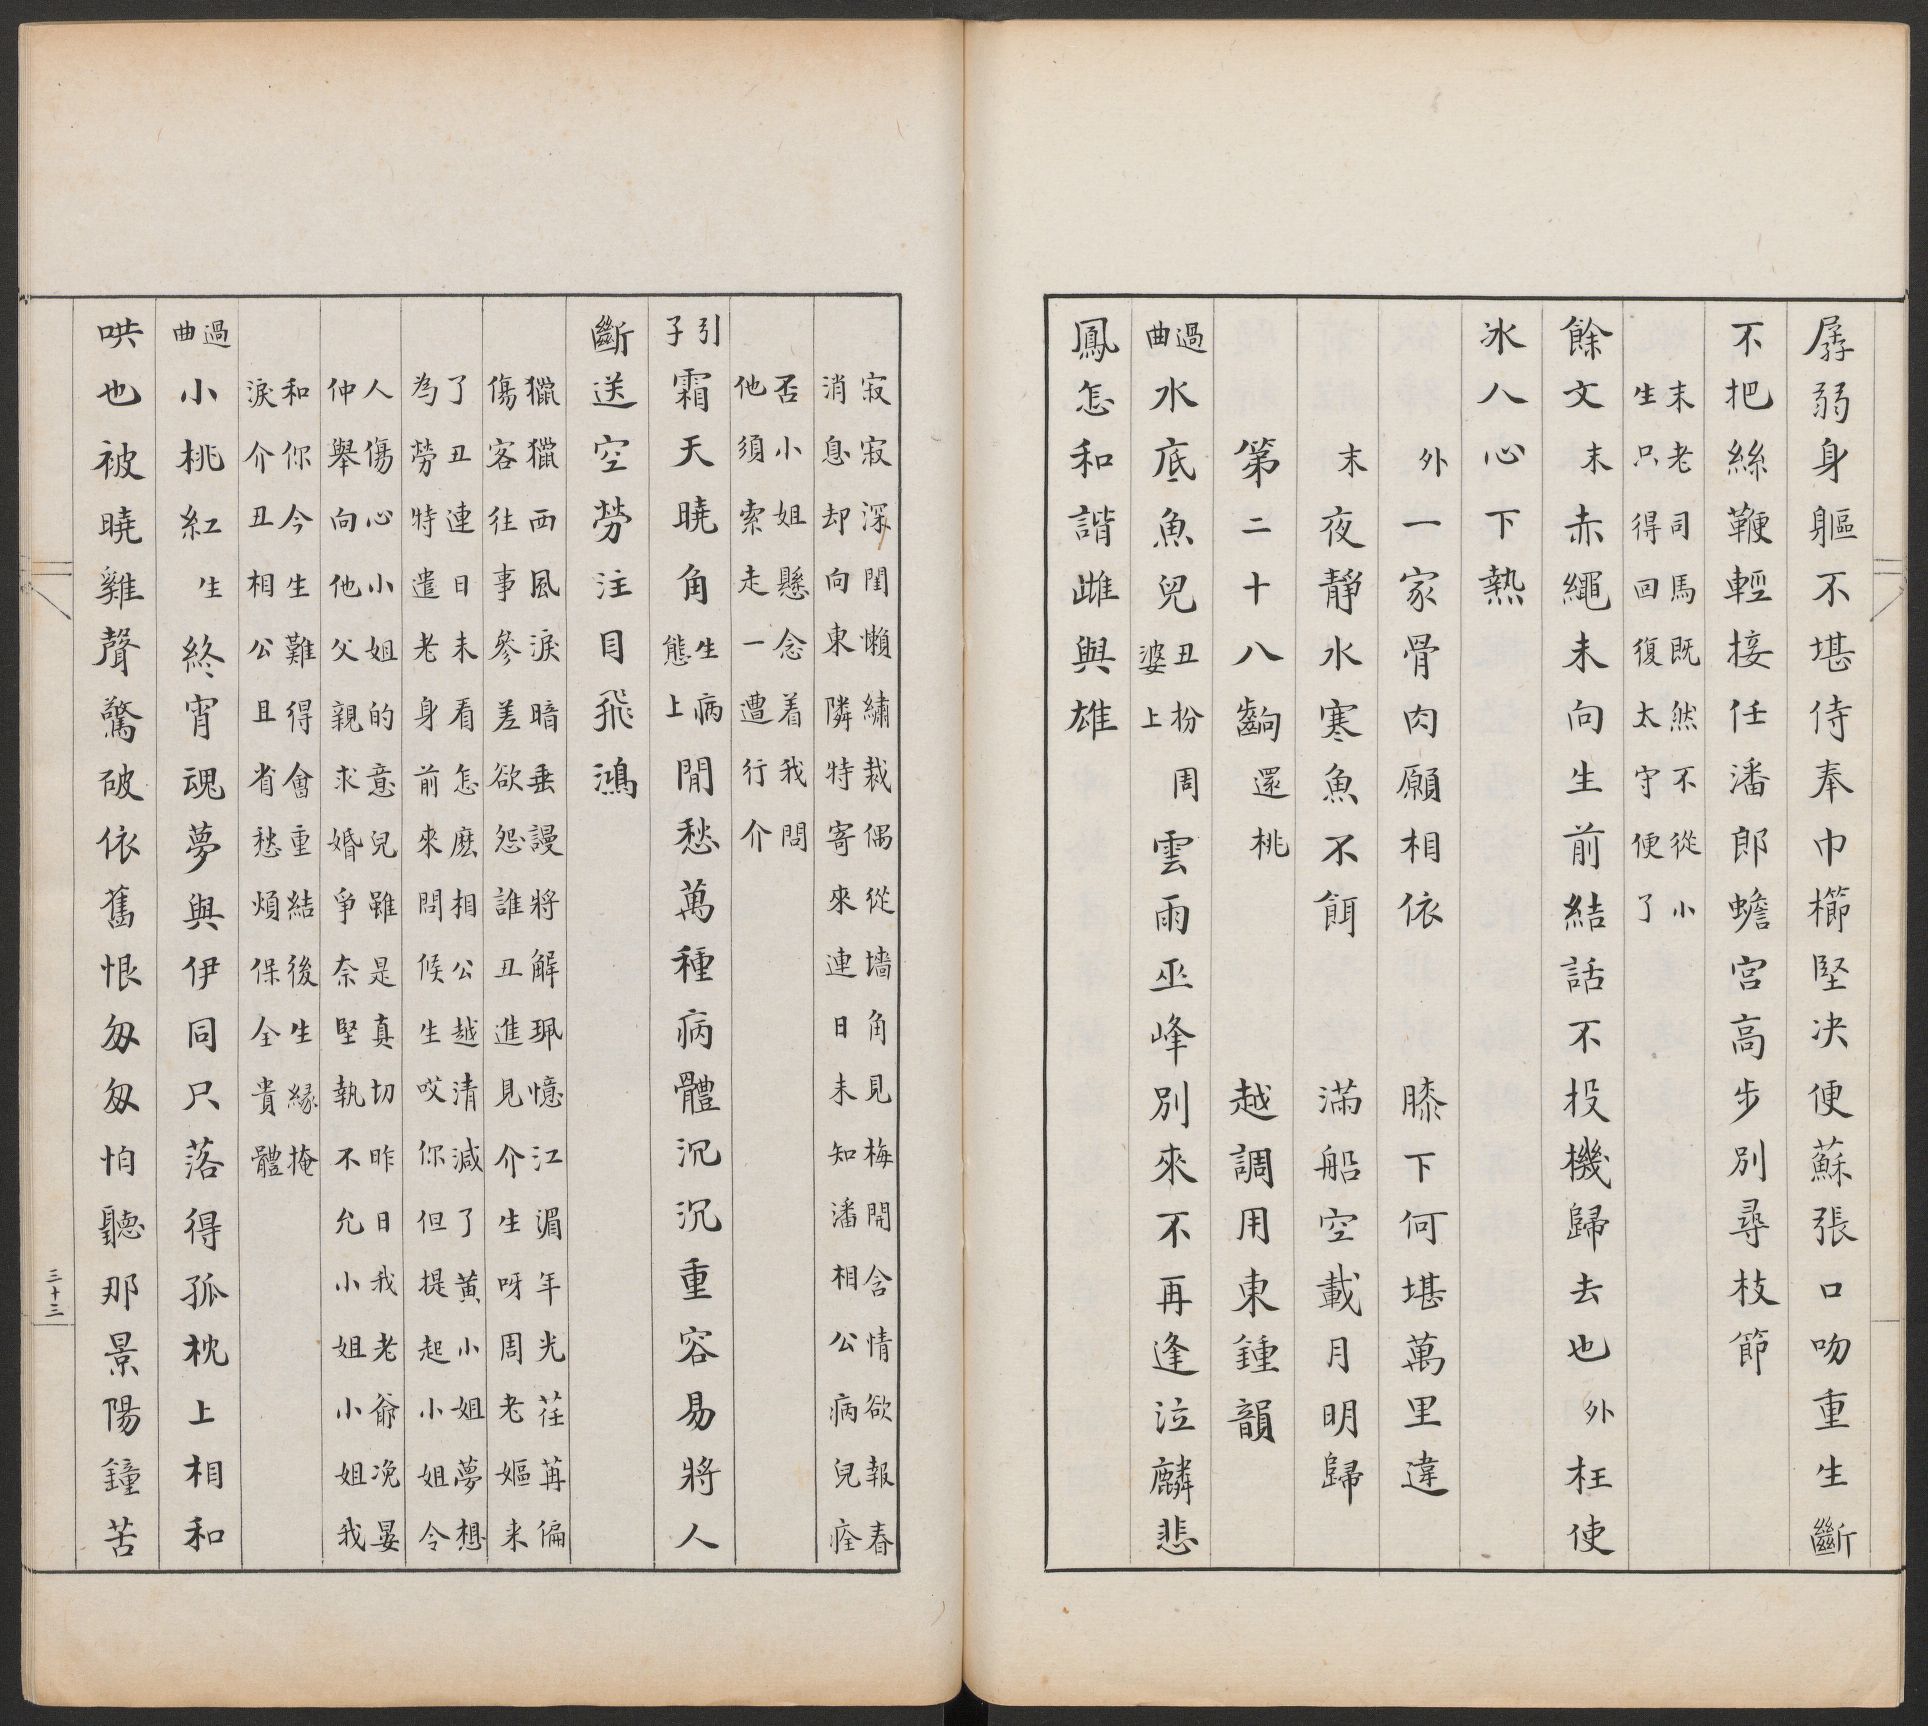 孱弱身軀不堪侍奉巾櫛堅决便蘇張口吻重生斷
不把絲鞭輕接任潘郎蟾宮高步別尋枝節
末老司馬既然不從小
生只得回復太守便了
餘文末赤繩未向生前結話不投機歸去也外枉使
氷人心下熱
外一家骨肉願相依 膝下何堪萬里違
末夜靜水寒魚不餌 滿船空載月明歸
第二十八齣還桃 越調用東鍾韻
過曲水底魚兒丑扮周婆上雲雨巫峰別來不再逢泣麟悲
鳳怎和諧雌與雄
寂寂深閨懶繡裁偶從墻角見梅開含情欲報春
消息却向東隣特寄來連日未知潘相公病兒痊
否小姐懸念着我問
他須索走一遭行介
引子霜天曉角生病態上閒愁萬種病體沉沉重容易將人
斷送空勞注目飛鴻
獵獵西風淚暗垂謾將解珮憶江湄年光荏苒偏
傷客往事參差欲怨誰丑進見介生呀周老嫗来
了丑連日未看怎麽相公越清減了黃小姐夢想
為勞特遣老身前來問候生哎你但提起小姐令
人傷心小姐的意兒雖是真切昨日我老爺浼晏
仲舉向他父親求婚爭奈堅執不允小姐小姐我
和你今生難得會重結後生緣掩
淚介丑相公且省愁煩保全貴體
過曲小桃紅生終宵魂夢與伊同只落得孤枕上相和
哄也被曉雞聲驚破依舊恨匆匆怕聽那景陽鐘苦
三十三